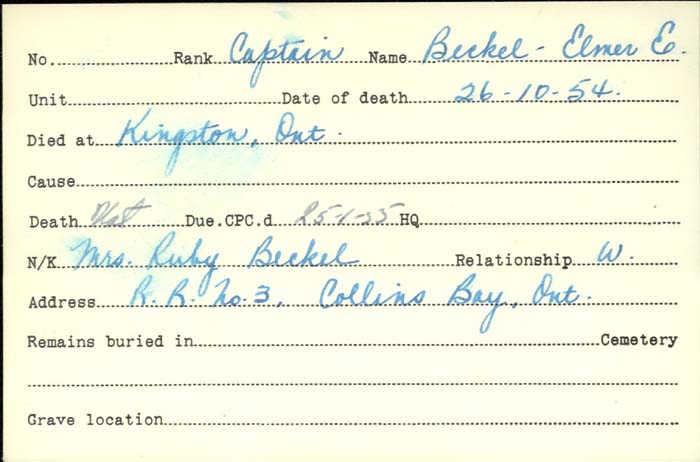 No. Rank Captain Name Beckel - Elmer E.
Unit Date of death 26-10-54.
Died at Kingston, Ont.
Cause
Death Not Due.CPC.d 25-1-55 HQ
N/K Mrs. Ruby Beckel Relationship W.
Address R. R. No. 3, Collins Bay, Ont.
Remains buried in Cemetery
Grave location